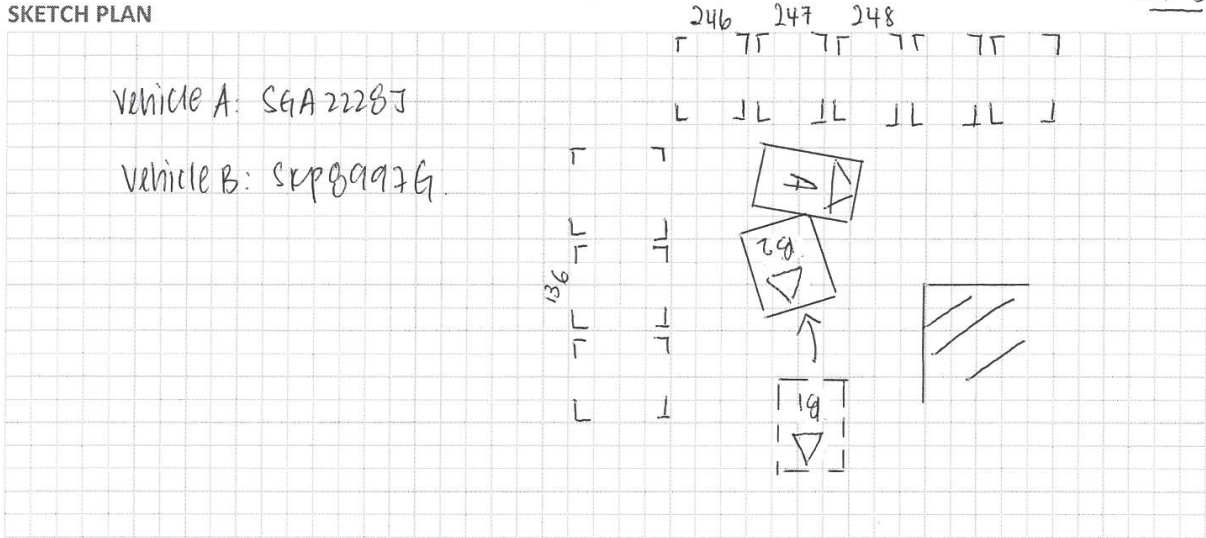 SKETCH PLAN
246 247 248
Vehicle A: SGA2228J
Vehicle B: SKP8997G.
A
B2
136
B1